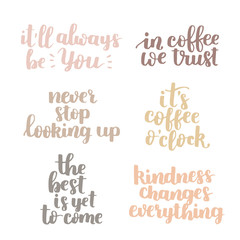 it'll always
be You
in coffee
we trust
never
stop
looking up
it's
coffee
o'clock
the
best
is yet
to come
kindness
changes
everything